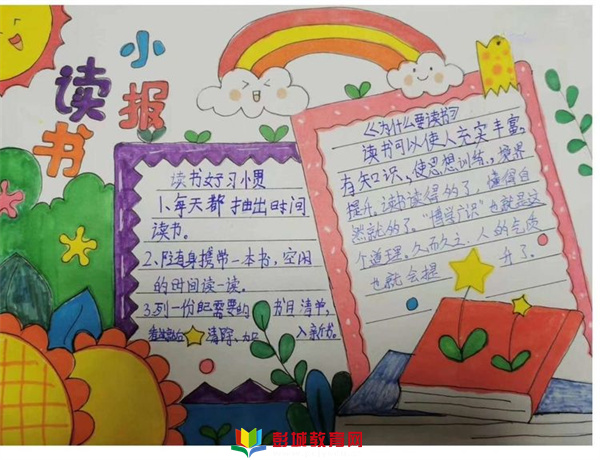 读书
小报
读书好习惯
1、每天都抽出时间
读书。
2、随身携带一本书,空闲
的时间读一读。
3列一份肥需要的书目清单,
清除、加 入新书。
《为什么要读书》
读书可以使人充实丰富。
有知识,使思想训练,境界
提升。读书读得的了,懂得自
然就的了。“博学广识”也就是这
个道理。久而久之,人的气质
也就会提 升了。
彭城教育网